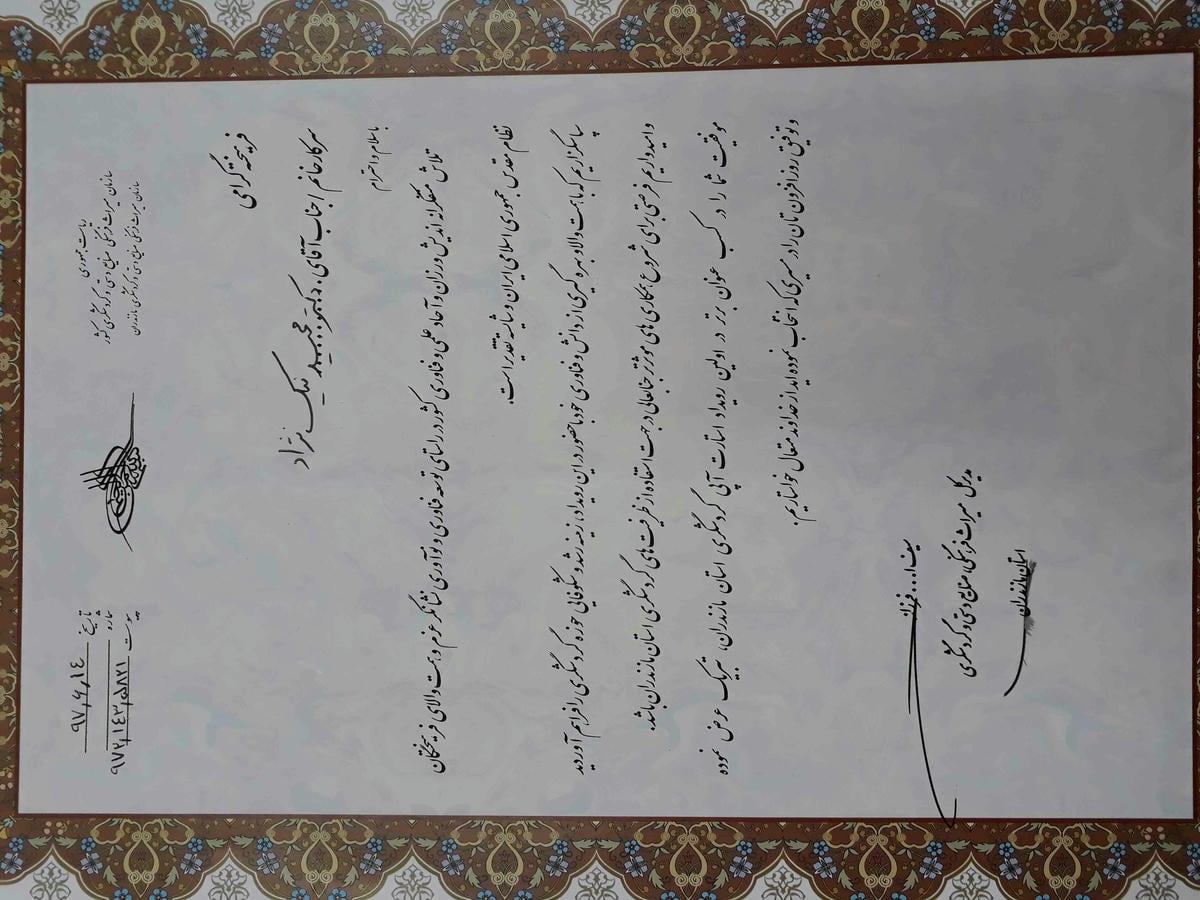 ریاست جمهوری
سازمان میراث فرهنگی، صنایع دستی و گردشگری کشور
سازمان میراث فرهنگی، صنایع دستی و گردشگری مازندران
تاریخ ۹۷،۶،۱٤
شماره ۹۷۲،۱٤۳،۵۸۲۱
پیوست
فرهیخته گرامی
سرکار خانم / جناب آقای . دکتر مجید نیک نژاد
با سلام و احترام
تلاش متفکرانه اندیش ورزان و آحاد علمی و فناوری کشور در راستای توسعه فناوری و نوآوری نشانگر عزم و همت والای فرهیختگان
نظام مقدس جمهوری اسلامی ایران و شایسته تقدیر است.
سپاسگزاریم که با همت والا و بهره گیری از دانش و فناوری خود با حضور در این رویداد، زمینه رشد و شکوفایی حوزه گردشگری را فراهم آوردید
و امیدواریم فرصتی برای شروع همکاری های موثرتر جنابعالی در جهت استفاده از ظرفیت های گردشگری استان مازندران باشد.
موفقیت شما را در کسب عنوان برتر در اولین رویداد استارت آپی گردشگری استان مازندران، تبریک عرض نموده
و توفیق روزافزون تان را در مسیری که انتخاب نموده اید از خداوند متعال خواستاریم.
سیف ا... فرزانه
مدیرکل میراث فرهنگی، صنایع دستی و گردشگری
استان مازندران